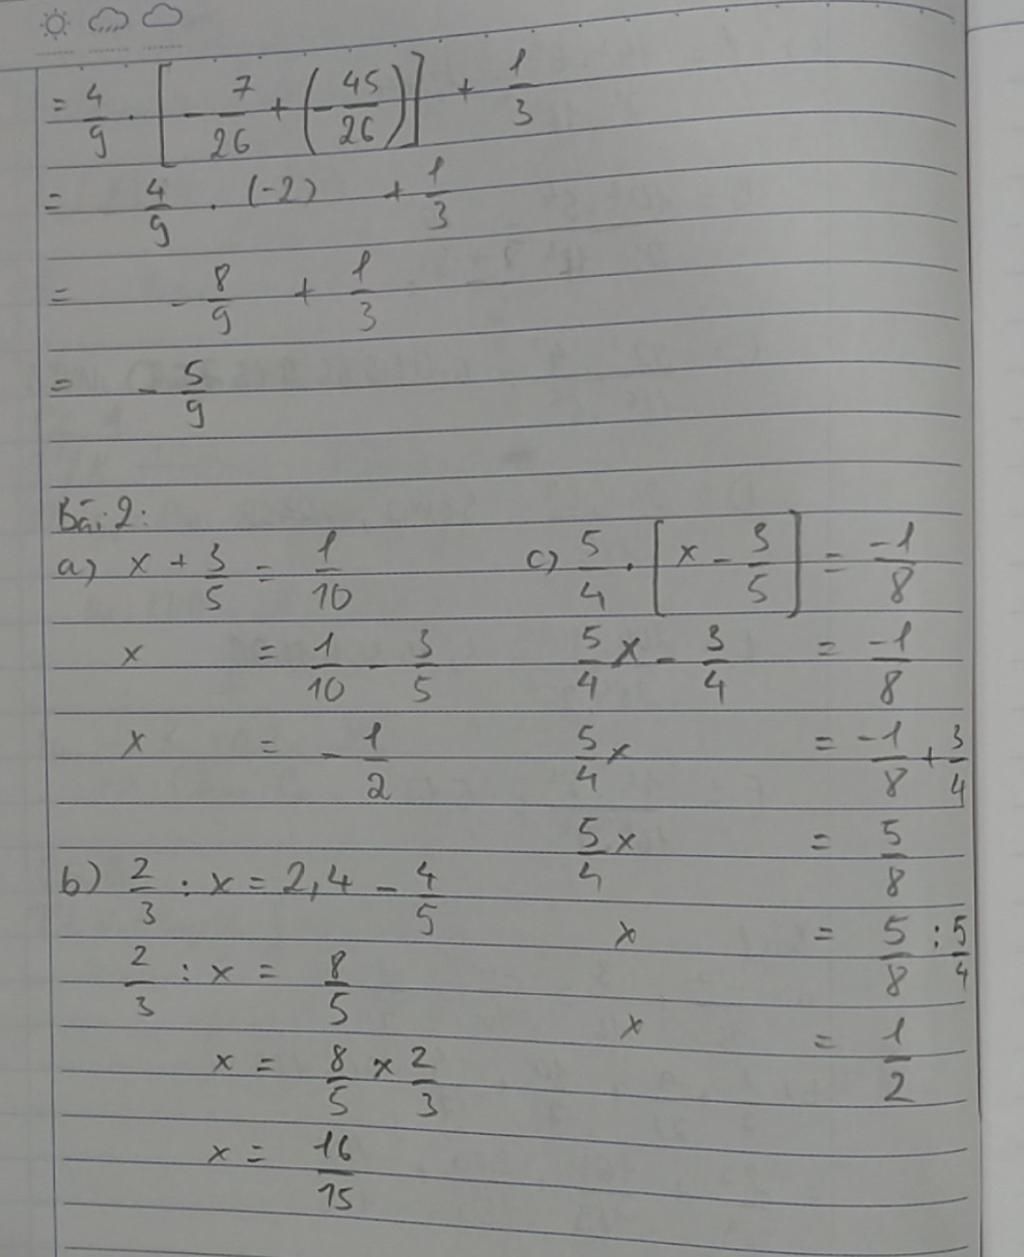 = 4/9 . [-7/26 + (-45/26)] + 1/3
= 4/9 . (-2) + 1/3
= -8/9 + 1/3
= -5/9
Bài 2:
a) x + 3/5 = 1/10
x = 1/10 - 3/5
x = -1/2
b) 2/3 : x = 2,4 - 4/5
2/3 : x = 8/5
x = 8/5 x 2/3
x = 16/15
c) 5/4 . [x - 3/5] = -1/8
5/4 x - 3/4 = -1/8
5/4 x = -1/8 + 3/4
5/4 x = 5/8
x = 5/8 : 5/4
x = 1/2